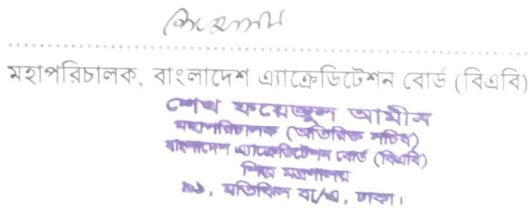 মহাপরিচালক, বাংলাদেশ এ্যাক্রেডিটেশন বোর্ড (বিএবি)
শেখ ফয়েজুল আমীন
মহাপরিচালক (অতিরিক্ত সচিব)
বাংলাদেশ এ্যাক্রেডিটেশন বোর্ড (বিএবি)
শিল্প মন্ত্রণালয়
৯১, মতিঝিল বা/এ, ঢাকা।